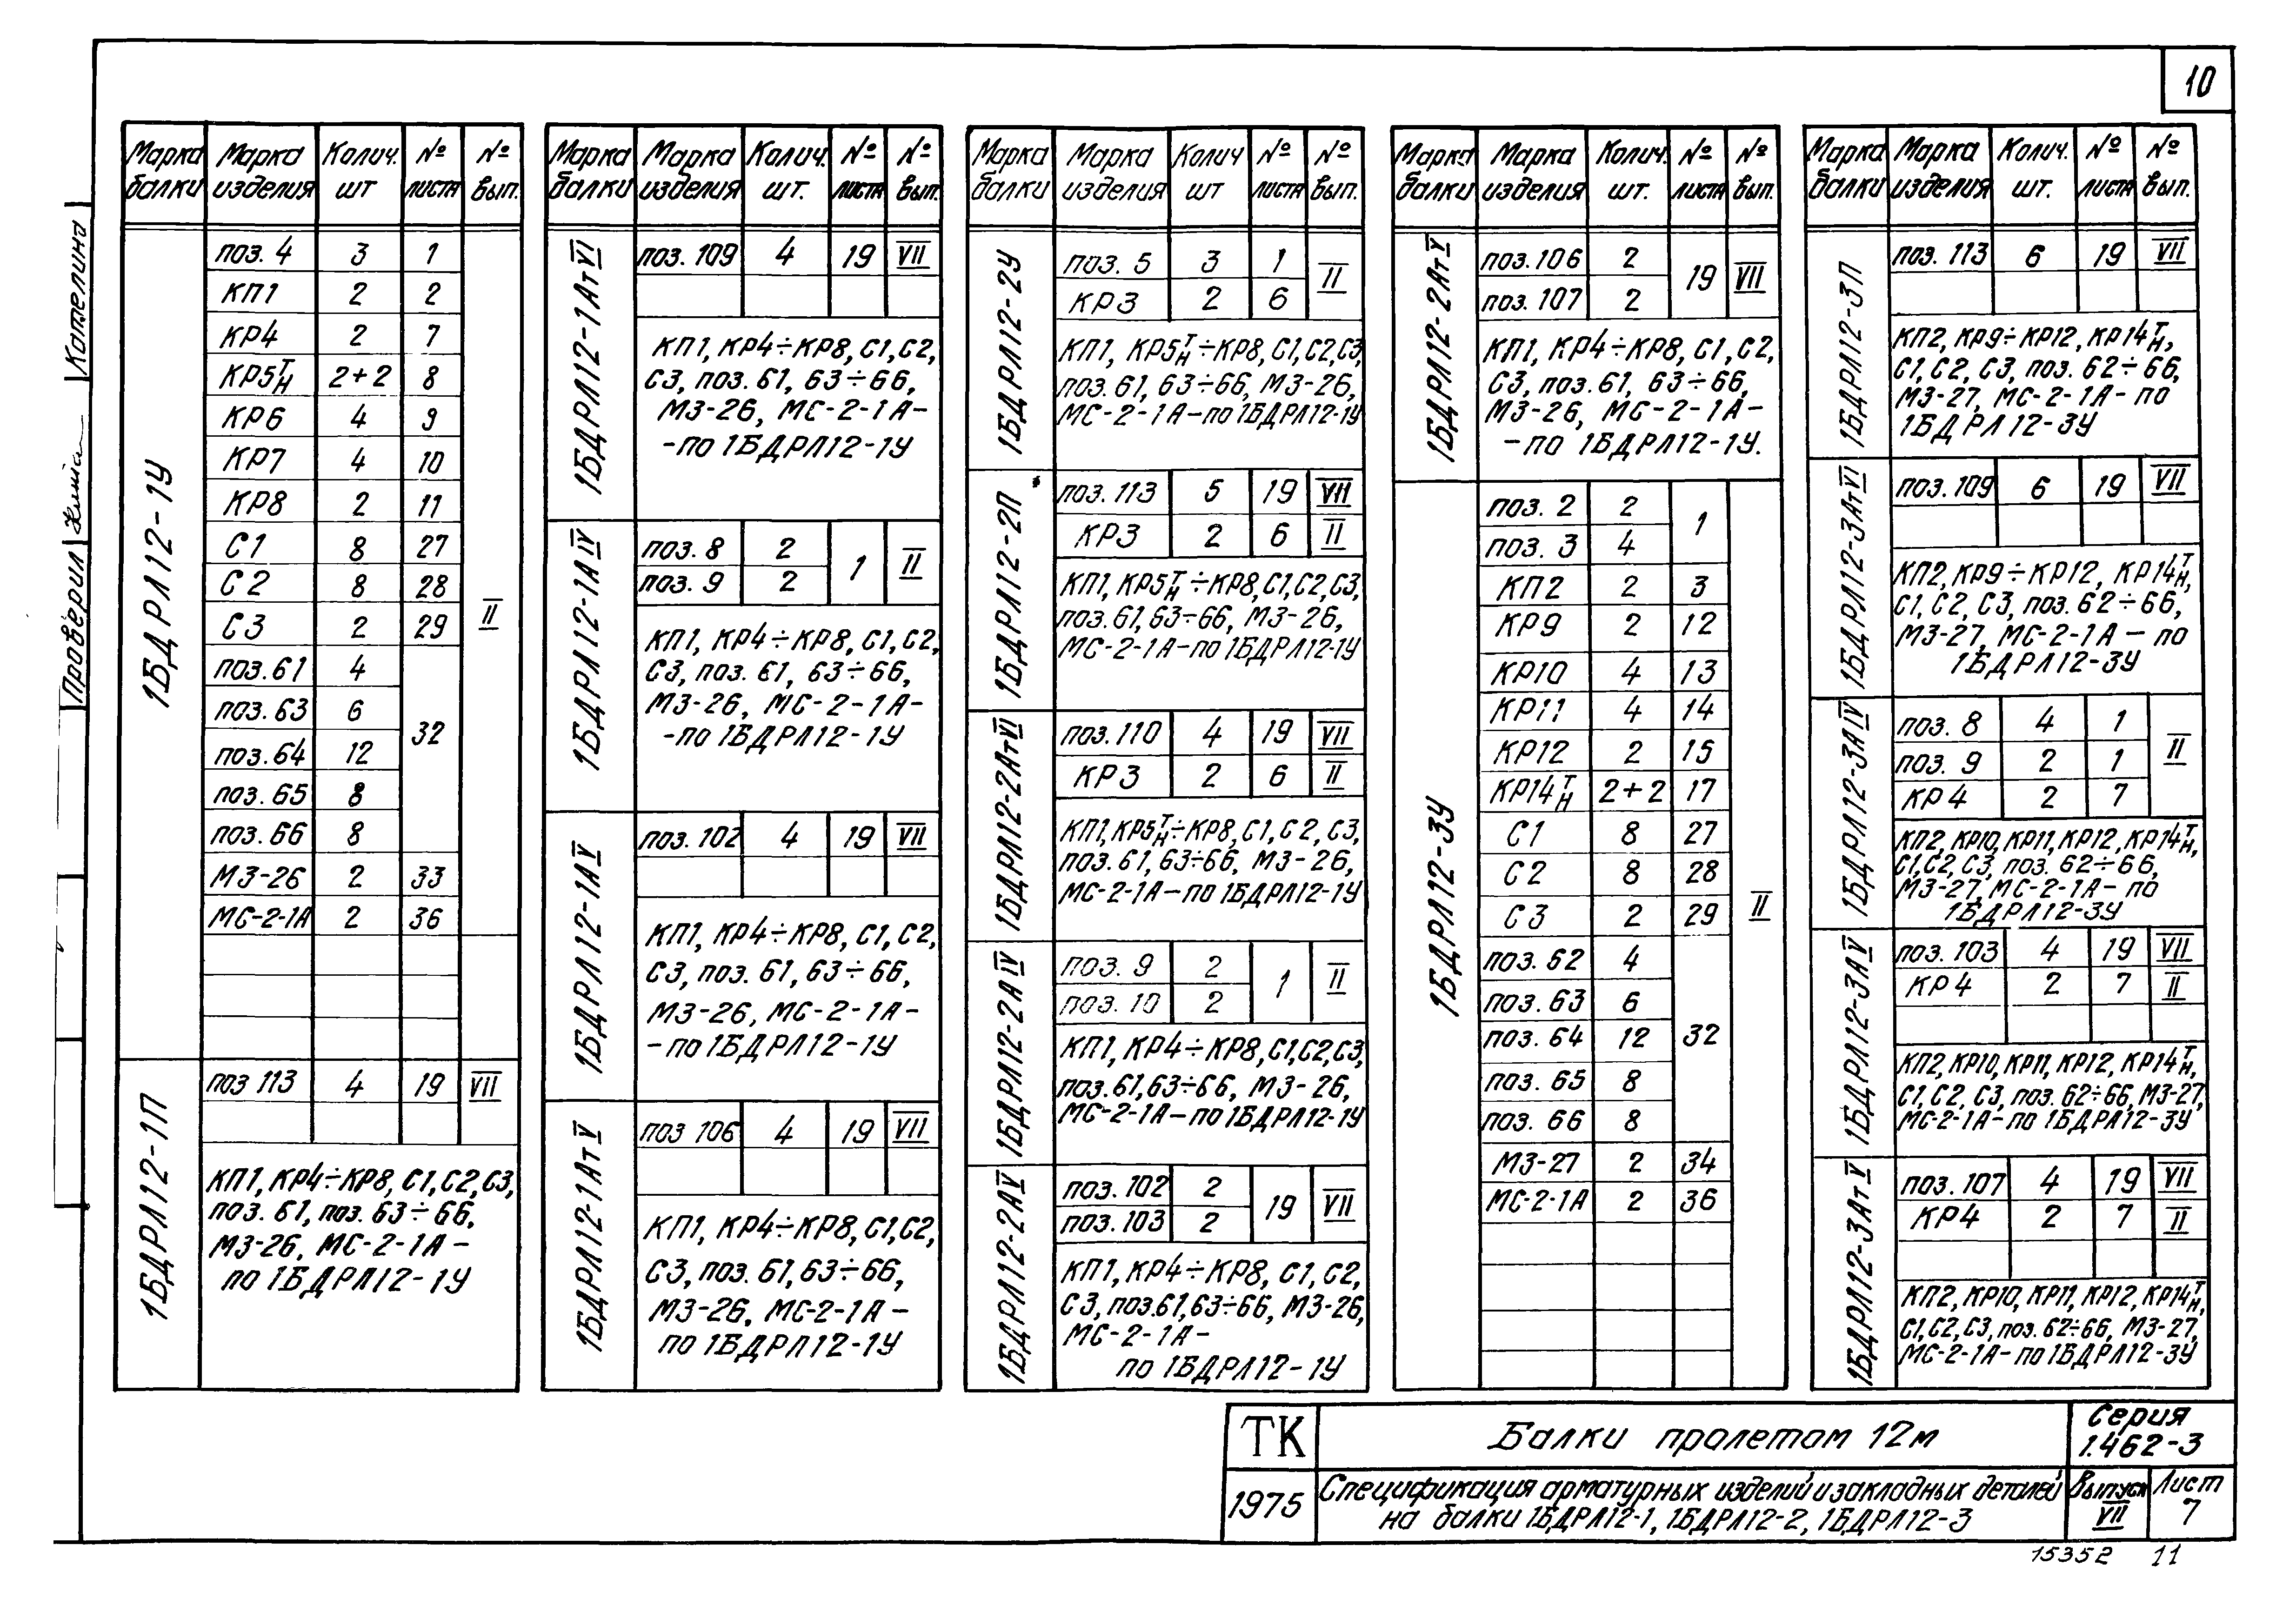 10
Марка балки | Марка изделия | Колич. шт | № листа | № вып.
1БДРЛ12-1У
поз. 4 | 3 | 1
КП1 | 2 | 2
КР4 | 2 | 7
КР5 Т Н | 2+2 | 8
КР6 | 4 | 9
КР7 | 4 | 10
КР8 | 2 | 11
С1 | 8 | 27
С2 | 8 | 28
С3 | 2 | 29
II
поз. 61 | 4
поз. 63 | 6
32
поз. 64 | 12
поз. 65 | 8
поз. 66 | 8
М3-26 | 2 | 33
МС-2-1А | 2 | 36
1БДРЛ12-1П
поз 113 | 4 | 19 | VII
КП1, КР4÷КР8, С1, С2, С3,
поз. 61, поз. 63÷66,
М3-26, МС-2-1А-
по 1БДРЛ12-1У
Марка балки | Марка изделия | Колич. шт. | № листа | № вып.
1БДРЛ12-1АтVI
поз. 109 | 4 | 19 | VII
КП1, КР4÷КР8, С1, С2,
С3, поз. 61, 63÷66,
М3-26, МС-2-1А-
-по 1БДРЛ12-1У
1БДРЛ12-1АIV
поз. 8 | 2 | 1 | II
поз. 9 | 2
КП1, КР4÷КР8, С1, С2,
С3, поз. 61, 63÷66,
М3-26, МС-2-1А-
-по 1БДРЛ12-1У
1БДРЛ12-1АV
поз. 102 | 4 | 19 | VII
КП1, КР4÷КР8, С1, С2,
С3, поз. 61, 63÷66,
М3-26, МС-2-1А-
-по 1БДРЛ12-1У
1БДРЛ12-1АтV
поз 106 | 4 | 19 | VII
КП1, КР4÷КР8, С1, С2,
С3, поз. 61, 63÷66,
М3-26, МС-2-1А-
по 1БДРЛ12-1У
Марка балки | Марка изделия | Колич шт | № листа | № вып.
1БДРЛ12-2У
поз. 5 | 3 | 1 | II
КР3 | 2 | 6
КП1, КР5 Т Н ÷КР8, С1, С2, С3,
поз. 61, 63÷66, М3-26,
МС-2-1А-по 1БДРЛ12-1У
1БДРЛ12-2П
поз. 113 | 5 | 19 | VII
КР3 | 2 | 6 | II
КП1, КР5 Т Н ÷КР8, С1, С2, С3,
поз. 61, 63÷66, М3-26,
МС-2-1А-по 1БДРЛ12-1У
1БДРЛ12-2АтVI
поз. 110 | 4 | 19 | VII
КР3 | 2 | 6 | II
КП1, КР5 Т Н ÷КР8, С1, С2, С3,
поз. 61, 63÷66, М3-26,
МС-2-1А-по 1БДРЛ12-1У
1БДРЛ12-2АIV
поз. 9 | 2 | 1 | II
поз. 10 | 2
КП1, КР4÷КР8, С1, С2, С3,
поз. 61, 63÷66, М3-26,
МС-2-1А-по 1БДРЛ12-1У
1БДРЛ12-2АV
поз. 102 | 2 | 19 | VII
поз. 103 | 2
КП1, КР4÷КР8, С1, С2,
С3, поз. 61, 63÷66, М3-26,
МС-2-1А-
по 1БДРЛ12-1У
Марка балки | Марка изделия | Колич. шт. | № листа | № вып.
1БДРЛ12-2АтV
поз. 106 | 2 | 19 | VII
поз. 107 | 2
КП1, КР4÷КР8, С1, С2,
С3, поз. 61, 63÷66,
М3-26, МС-2-1А-
-по 1БДРЛ12-1У.
1БДРЛ12-3У
поз. 2 | 2 | 1
поз. 3 | 4
КП2 | 2 | 3
КР9 | 2 | 12
КР10 | 4 | 13
КР11 | 4 | 14
КР12 | 2 | 15
КР14 Т Н | 2+2 | 17
С1 | 8 | 27
С2 | 8 | 28
С3 | 2 | 29
II
поз. 62 | 4
поз. 63 | 6
поз. 64 | 12 | 32
поз. 65 | 8
поз. 66 | 8
М3-27 | 2 | 34
МС-2-1А | 2 | 36
Марка балки | Марка изделия | Колич. шт. | № листа | № вып.
1БДРЛ12-3П
поз. 113 | 6 | 19 | VII
КП2, КР9÷КР12, КР14 Т Н,
С1, С2, С3, поз. 62÷66,
М3-27, МС-2-1А-по
1БДРЛ12-3У
1БДРЛ12-3АтVI
поз. 109 | 6 | 19 | VII
КП2, КР9÷КР12, КР14 Т Н,
С1, С2, С3, поз. 62÷66,
М3-27, МС-2-1А-по
1БДРЛ12-3У
1БДРЛ12-3АIV
поз. 8 | 4 | 1
II
поз. 9 | 2 | 1
КР4 | 2 | 7
КП2, КР10, КР11, КР12, КР14 Т Н,
С1, С2, С3, поз. 62÷66,
М3-27, МС-2-1А-по
1БДРЛ12-3У
1БДРЛ12-3АV
поз. 103 | 4 | 19 | VII
КР4 | 2 | 7 | II
КП2, КР10, КР11, КР12, КР14 Т Н,
С1, С2, С3, поз. 62÷66, М3-27,
МС-2-1А-по 1БДРЛ12-3У
1БДРЛ12-3АтV
поз. 107 | 4 | 19 | VII
КР4 | 2 | 7 | II
КП2, КР10, КР11, КР12, КР14 Т Н,
С1, С2, С3, поз. 62÷66, М3-27,
МС-2-1А-по 1БДРЛ12-3У
Проверил Котелина
ТК
1975
Балки пролетом 12м
Спецификация арматурных изделий и закладных деталей
на балки 1БДРЛ12-1, 1БДРЛ12-2, 1БДРЛ12-3
Серия
1.462-3
Выпуск
VII
Лист
7
15352 11